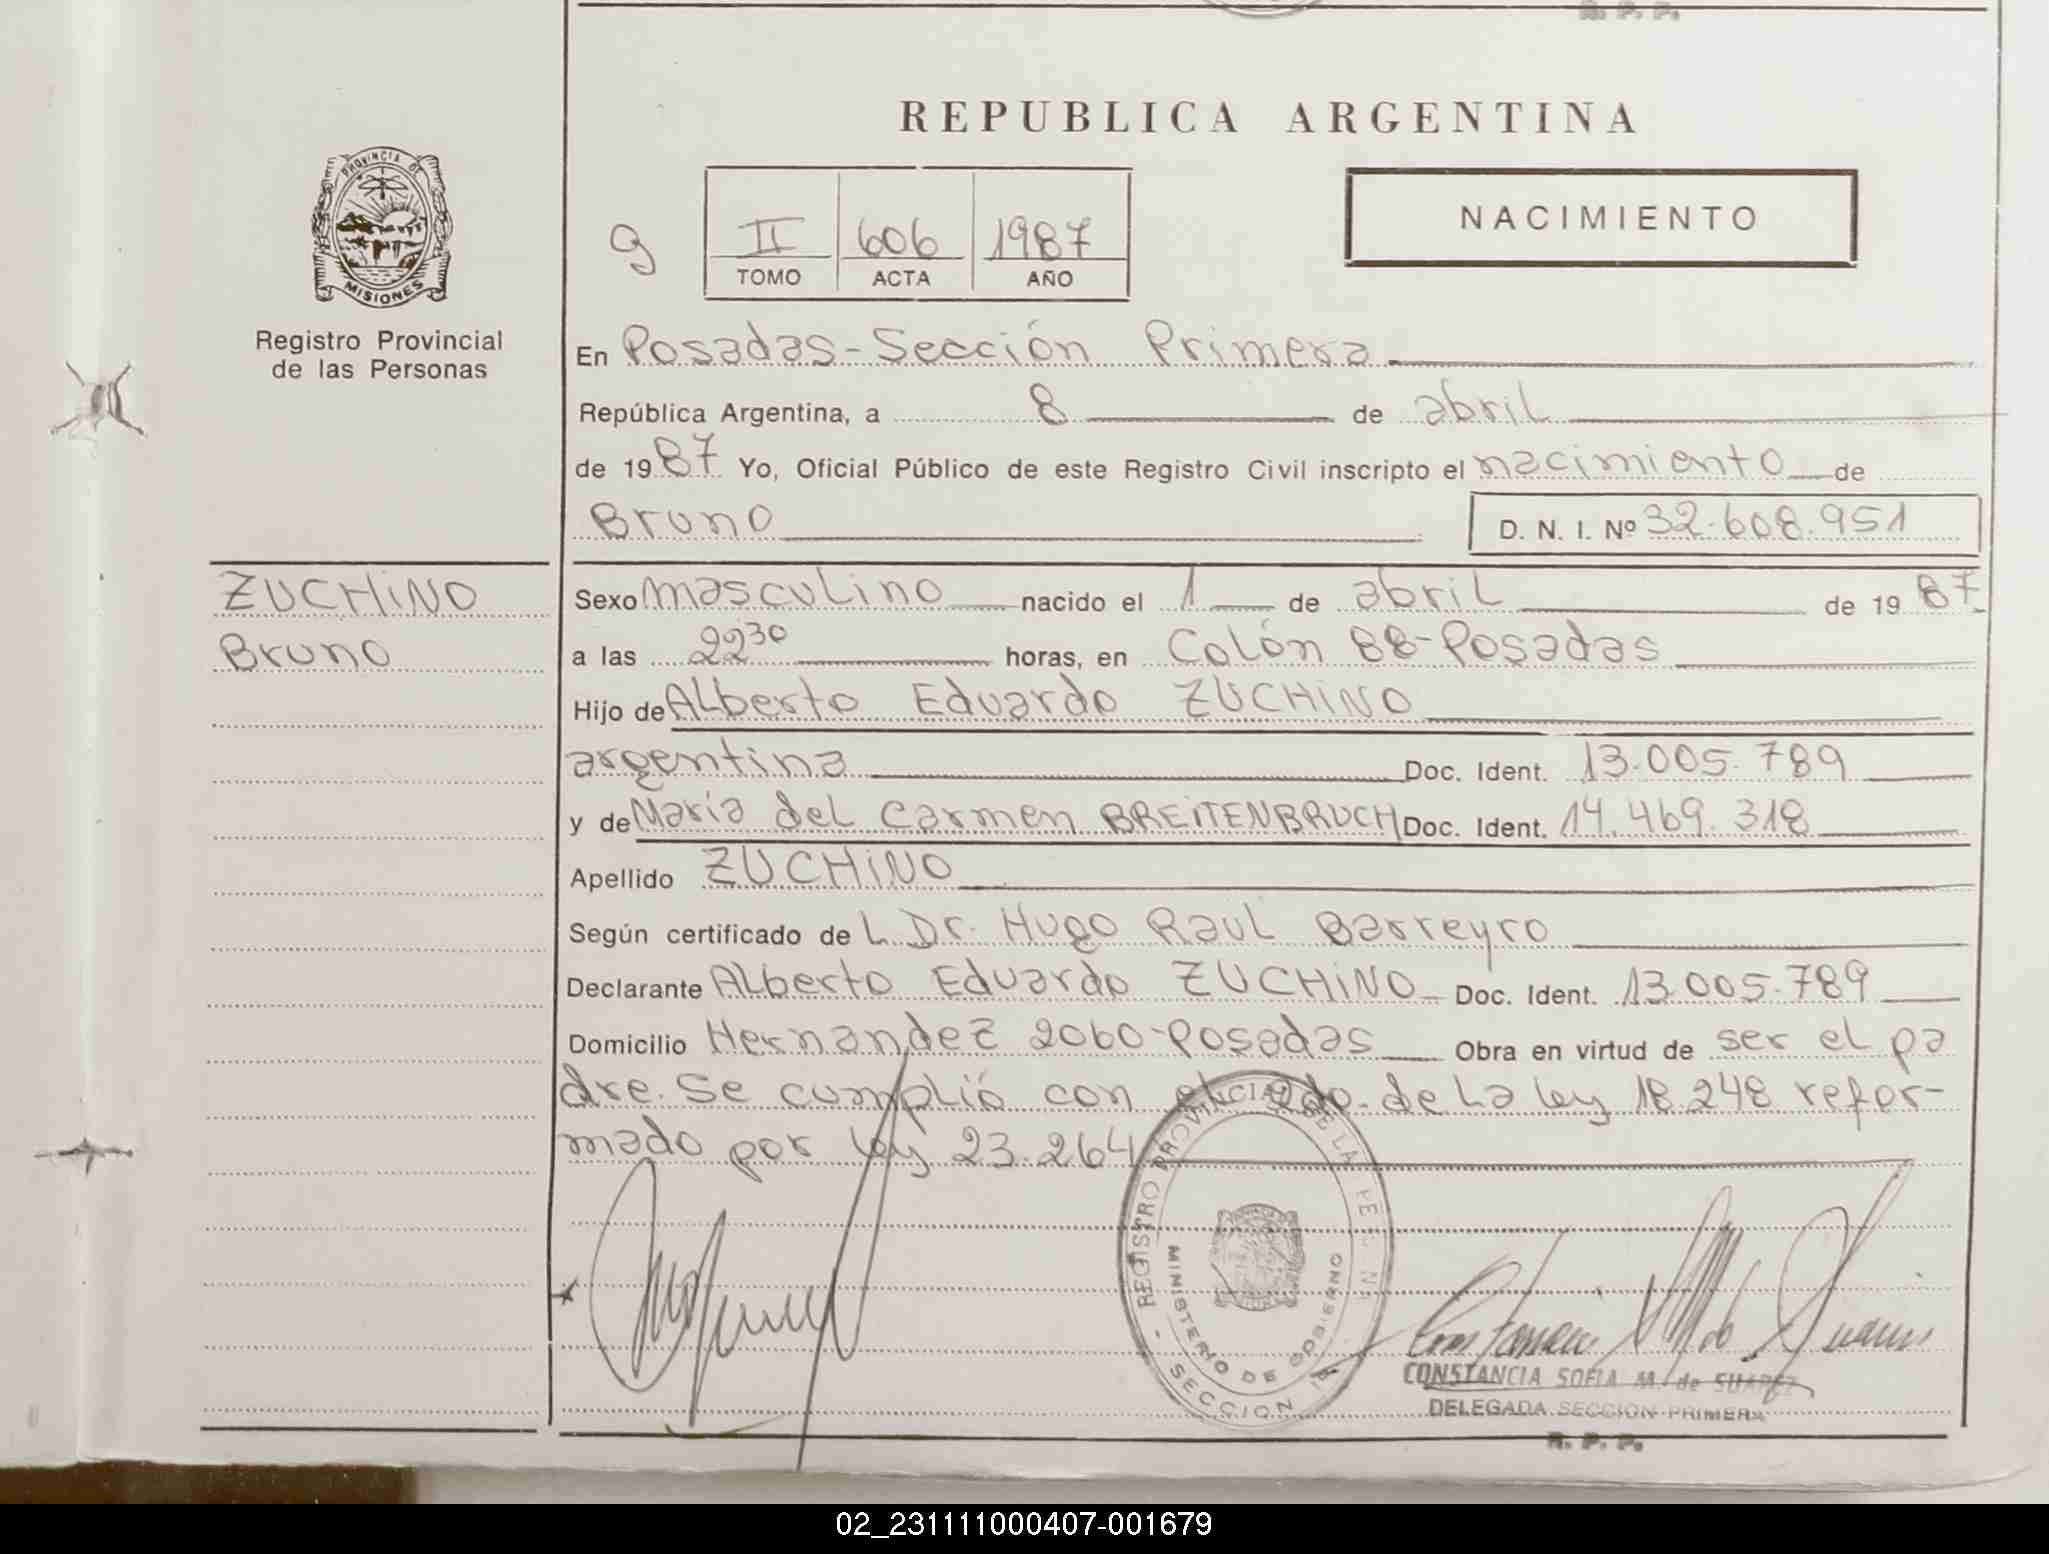 R. P. P.
REPUBLICA ARGENTINA
PROVINCIA DE
MISIONES
Registro Provincial
de las Personas
g
II 606 1987
TOMO ACTA AÑO
NACIMIENTO
En Posadas-Sección Primera
República Argentina, a 8 de abril
de 1987 Yo, Oficial Público de este Registro Civil inscripto el nacimiento de
Bruno D. N. I. Nº 32.608.951
ZUCHiNO
Bruno
Sexo masculino nacido el 1 de abril de 1987
a las 22 30 horas, en Colón 88-Posadas
Hijo de Alberto Eduardo ZUCHiNO
argentina Doc. Ident. 13.005.789
y de María del Carmen BREiTENBRUCH Doc. Ident. 14.469.318
Apellido ZUCHiNO
Según certificado de L Dr. Hugo Raul Barreyro
Declarante Alberto Eduardo ZUCHiNO Doc. Ident. 13.005.789
Domicilio Hernandez 2060-Posadas Obra en virtud de ser el pa
dre. Se cumplió con el de La Ley 18.248 refor-
mado por Ley 23.264
REGISTRO PROVINCIAL DE LA
MINISTERIO DE GOBIERNO
SECCION
CONSTANCIA SOFIA M. de SUAREZ
DELEGADA SECCION PRIMERA
R. P. P.
02_231111000407-001679